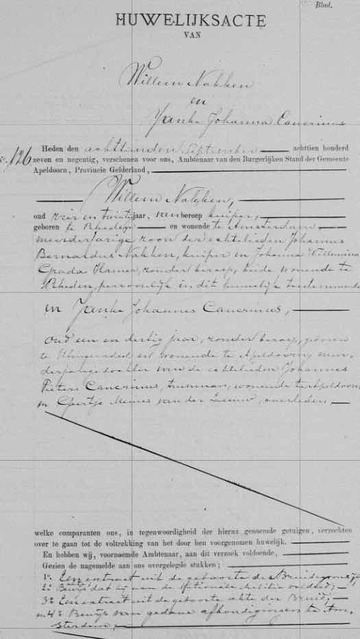 Blad.
HUWELIJKSACTE
VAN
Willem Nakken
en
Janke Johanna Canrinus
No. 126
Heden den achttienden September achttien honderd
zeven en negentig, verschenen voor ons, Ambtenaar van den Burgerlijken Stand der Gemeente
Apeldoorn, Provincie Gelderland,
Willem Nakken,
oud jaar, van beroep kuiper,
geboren te Rheden en wonende te Amsterdam
meerderjarige zoon der echtelieden Johannes
Bernardus Nakken, kuiper en Johanna Willemina
zonder beroep, beide wonende te
Rheden, persoonlijk in dit huwelijk toestemmende
en Janke Johanna Canrinus,
oud een en dertig jaar, zonder beroep, geboren
te en wonende te Apeldoorn, meer
derjarige dochter van de echtelieden Johannes
Pieter Canrinus, tuinman, wonende te Apeldoorn,
en van der Leeuw, overleden
welke comparanten ons, in tegenwoordigheid der hierna genoemde getuigen, verzochten
over te gaan tot de voltrekking van het door hen voorgenomen huwelijk.
En hebben wij, voornoemde Ambtenaar, aan dit verzoek voldoende,
Gezien de nagemelde aan ons overgelegde stukken;
1e. Een extract uit de geboorte des Bruidegoms,
2e. Bewijs de Nationale Militie voldaan;
3e. Een extract uit de geboorte akte der Bruid;
en 4e. Bewijs van gedane afkondigingen te Am
sterdam,